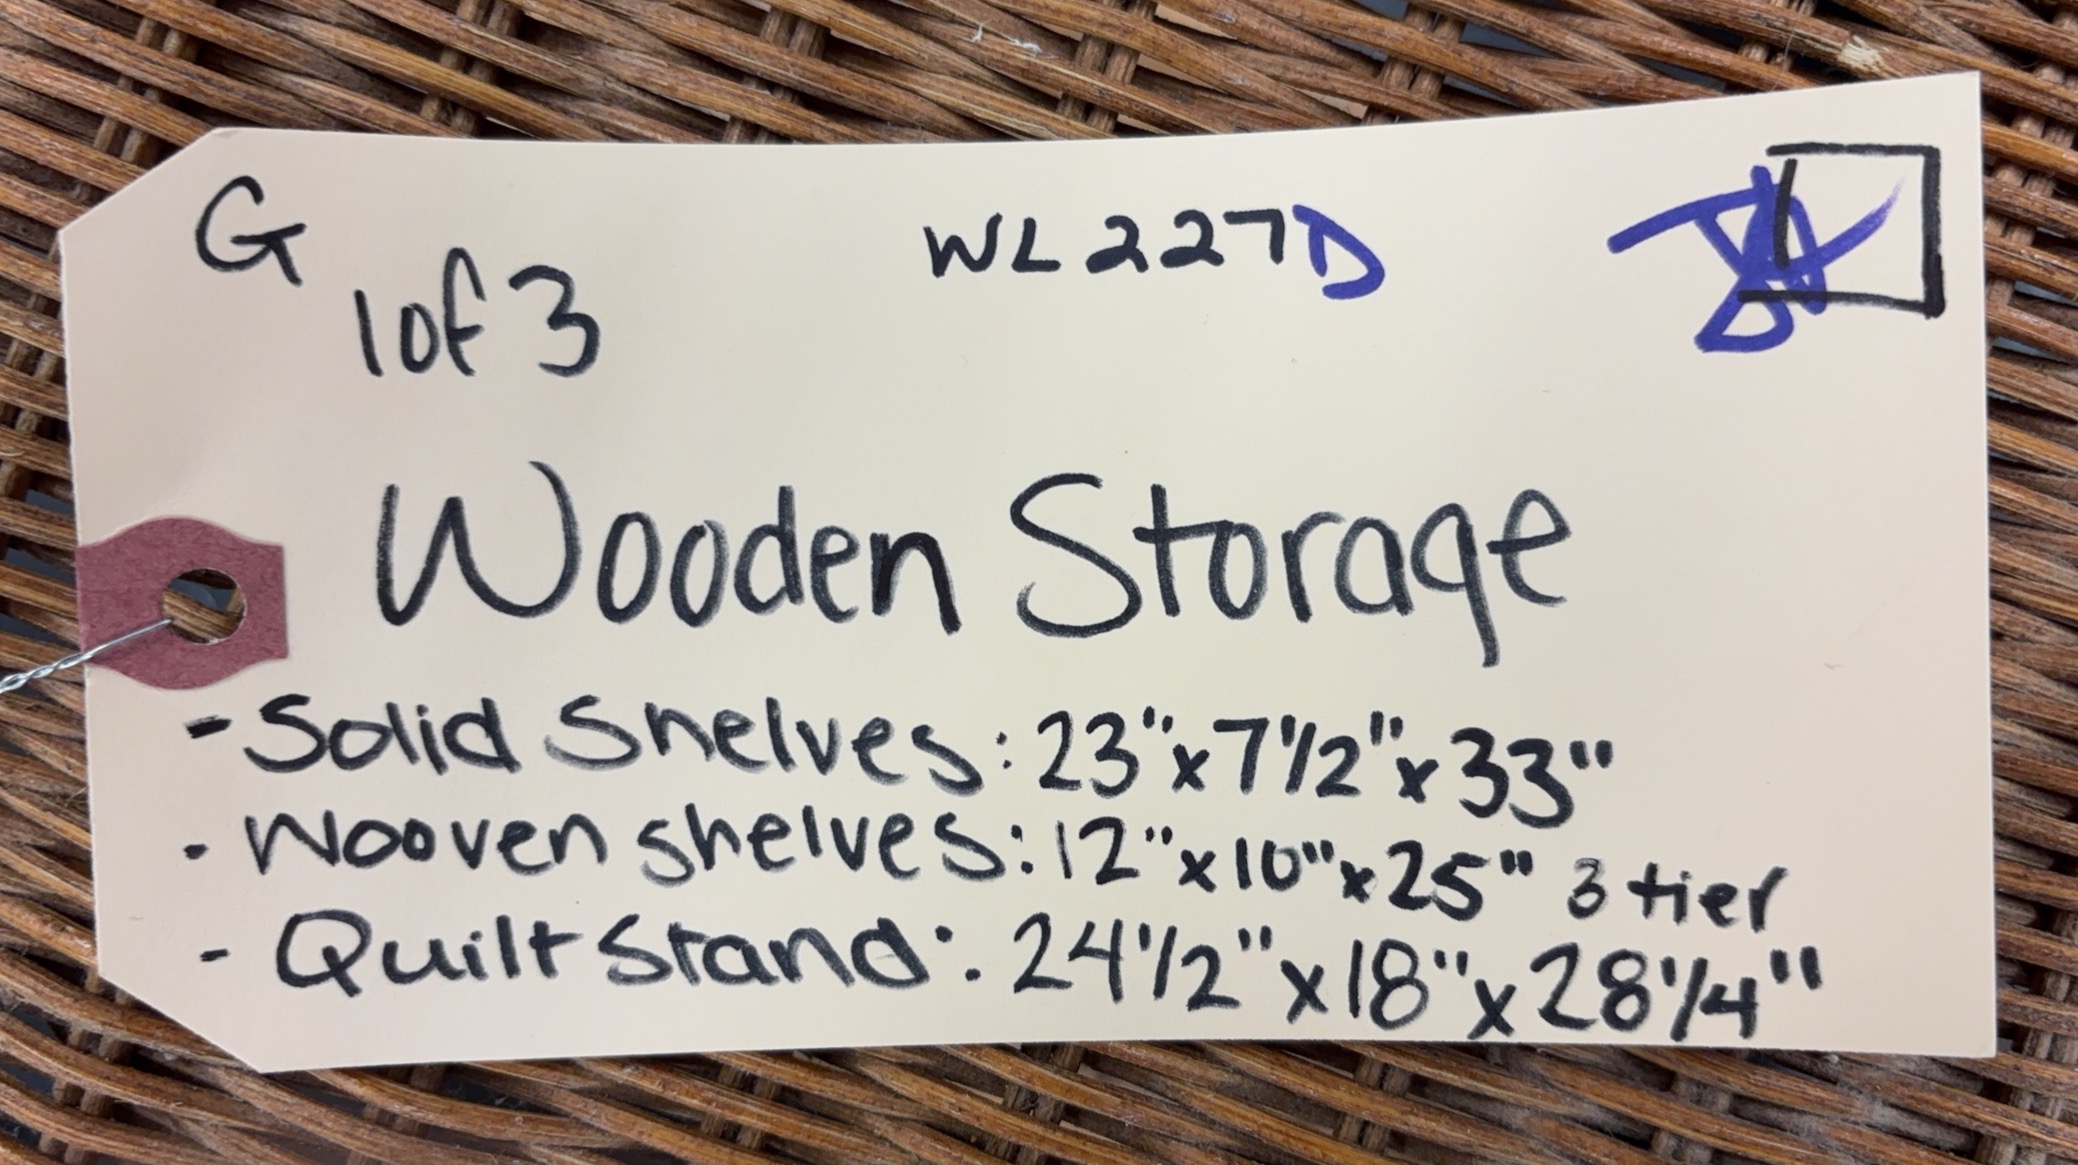 G
1 of 3
WL227D
Wooden Storage
- Solid Shelves: 23" x 7 1/2" x 33"
- Wooven shelves: 12" x 10" x 25" 3 tier
- Quilt Stand: 24 1/2" x 18" x 28 1/4"